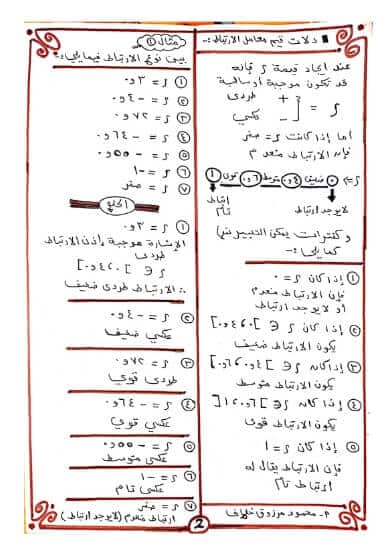 ■ دلالات قيم معامل الارتباط :-
عند إيجاد قيمة ر فإنه
قد تكون موجبة أو سالبة
ر = + طردى
- عكسي
أما إذا كانت ر = صفر
فإن الارتباط منعدم
ر = ٠ ضعيف ٤و٠ متوسط ٦و٠ قوى ١
لا يوجد ارتباط
ارتباط تام
وكفترات يمكن التعبير عن
كما يلي :-
① إذا كان ر = ٠
فإن الارتباط منعدم
أو لا يوجد ارتباط
② إذا كان ر ∈ ]٠، ٤و٠[
يكون الارتباط ضعيف
③ إذا كان ر ∈ ]٤و٠، ٦و٠[
يكون الارتباط متوسط
④ إذا كان ر ∈ ]٦و٠، ١[
يكون الارتباط قوى
⑤ إذا كان ر = ١
فإن الارتباط يقال له
ارتباط تام
م- محمود مرزوق خلاف
مثال ①
بين نوع الارتباط فيما يلي :-
① ر = ٣و٠
② ر = -٤و٠
③ ر = ٧٢و٠
④ ر = -٦٤و٠
⑤ ر = -٥٥و٠
⑥ ر = -١
⑦ ر = صفر
الحل
① ر = ٣و٠
الإشارة موجبة إذن الارتباط
طردى
ر ∈ ]٠، ٤و٠[
∴ الارتباط طردى ضعيف
② ر = -٤و٠
عكسي ضعيف
③ ر = ٧٢و٠
طردى قوي
④ ر = -٦٤و٠
عكسي قوي
⑤ ر = -٥٥و٠
عكسي متوسط
⑥ ر = -١
عكسي تام
⑦ ر = صفر
ارتباط منعدم (لا يوجد ارتباط)
2